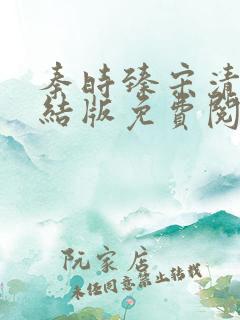 秦時臻宋清
結版免費閱
阮家店
未经同意禁止转载